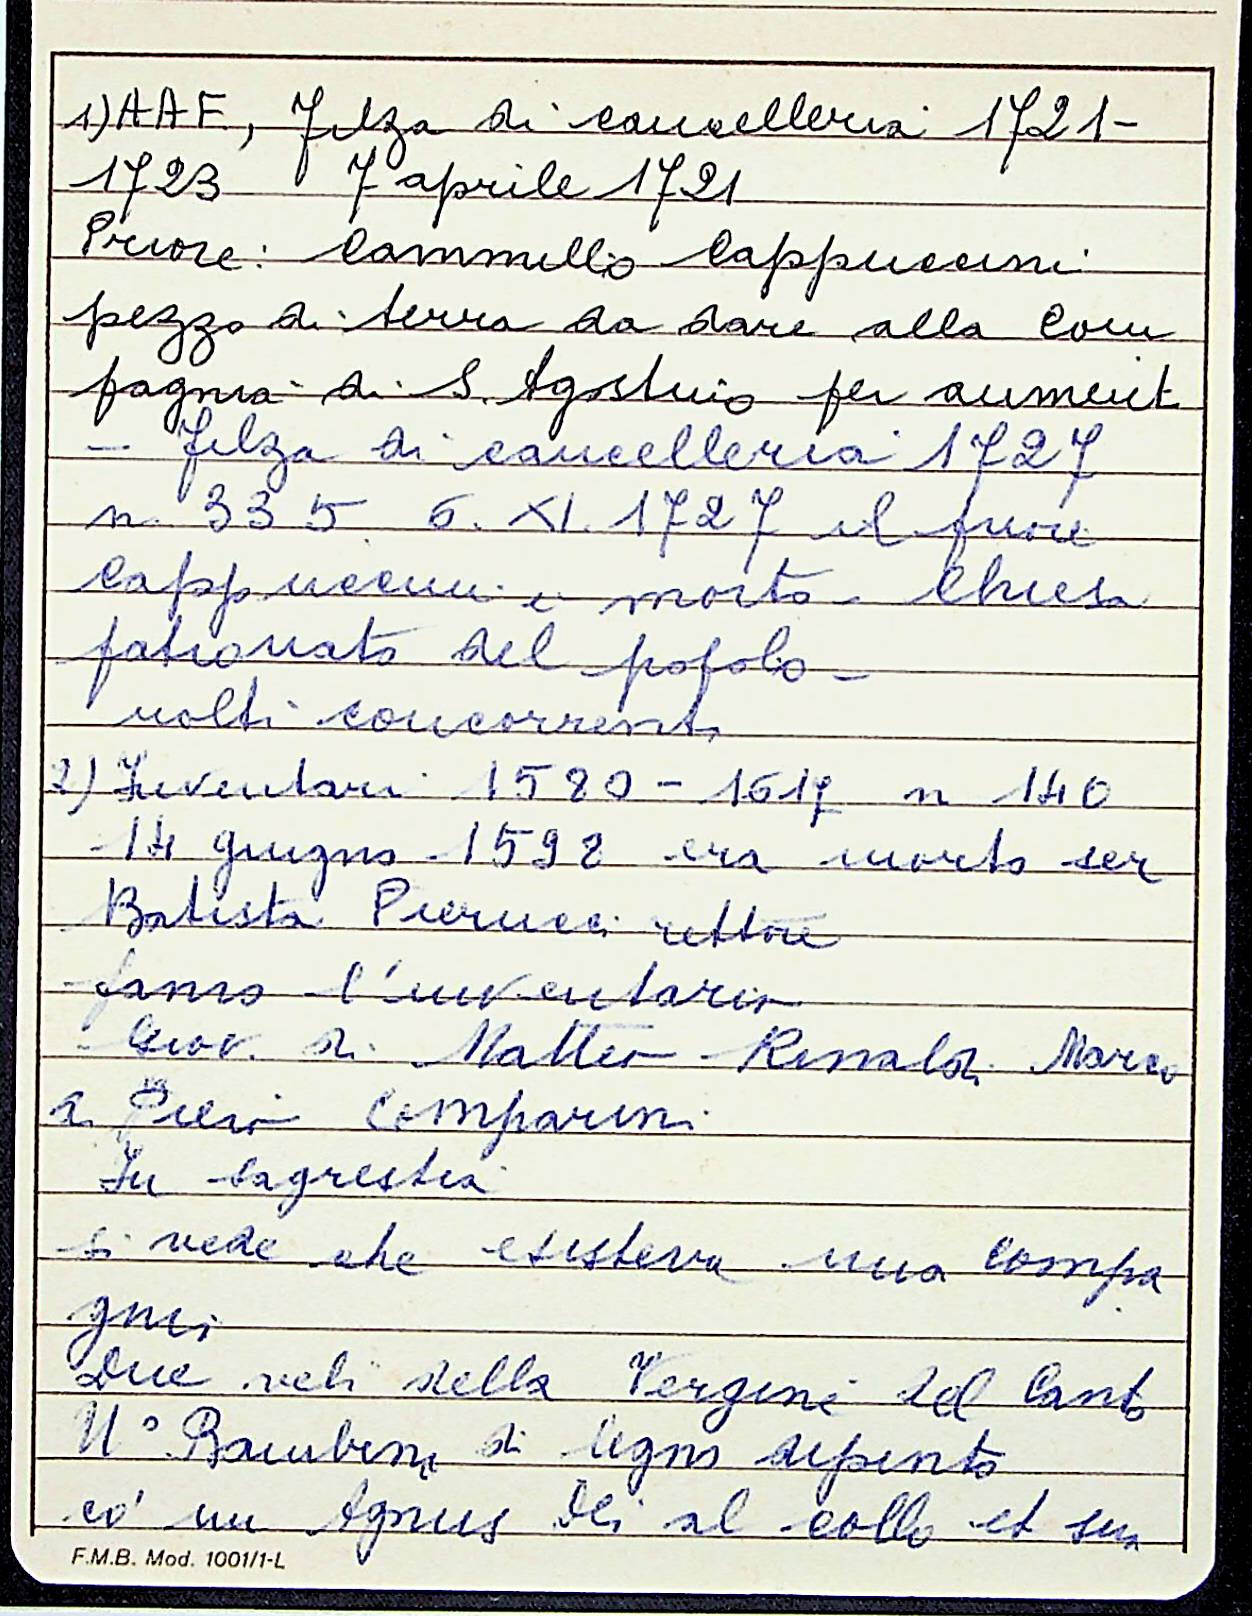 1) AAF, Filza di cancelleria 1721-
1723 7 aprile 1721
Priore: Cammillo Cappuccini
pezzo di terra da dare alla Com
pagnia di S. Agostino per aument
- Filza di cancelleria 1727
n. 335 6. XI. 1727 il priore
Cappuccini è morto - Chiesa
patronato del popolo -
molti concorrenti
2) Inventari 1580-1617 n 140
14 giugno 1598 era morto ser
Batista Pierucci rettore
fanno l'inventario
Giov. di Matteo Rinaldi Marco
di Piero Comparini
In sagrestia
si vede che esisteva una compa
gnia
Due veli della Vergine del Canto
Uº Bambino di legno dipinto
cò un Agnus Dei al collo et sua
F.M.B. Mod. 1001/1-L